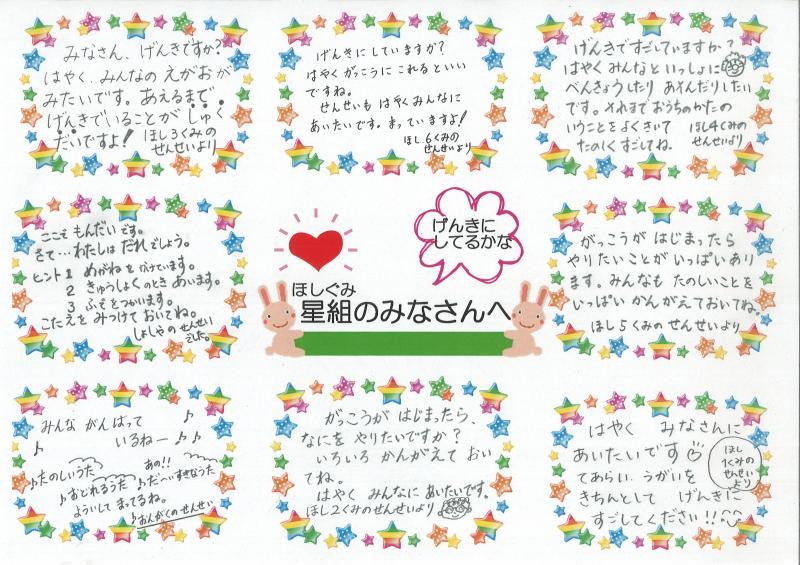 みなさん、げんきですか?
はやく、みんなの えがおが
みたいです。あえるまで
げんきでいることが しゅく
だいですよ!
ほし3くみの
せんせいより
げんきにしていますか?
はやく がっこうに これるといい
ですね。
せんせいも はやく みんなに
あいたいです。まっていますよ!
ほし6くみの
せんせいより
げんきですごしていますか?
はやく みんなと いっしょに
べんきょうしたり あそんだりしたい
です。それまで おうちのかたの
いうことを よくきいて
たのしく すごしてね。
ほし4くみの
せんせいより
ここで もんだいです。
さて…わたしは だれでしょう。
ヒント1 めがねを かけています。
2 きゅうしょくのとき あいます。
3 ふえをつかいます。
こたえを みつけて おいてね。
しょしゃの せんせい
でした。
げんきに
してるかな
ほしぐみ
星組のみなさんへ
がっこうが はじまったら
やりたいことが いっぱいあり
ます。みんなも たのしいことを
いっぱい かんがえておいてね。
ほし5くみの せんせいより
みんな がんばって
いるねー♪♪
♪たのしいうた
あの!!
♪おどれるうた ♪だ〜いすきなうた
よういして まってるね。
♪おんがくの せんせい
がっこうが はじまったら、
なにを やりたいですか?
いろいろ かんがえて おい
てね。
はやく みんなに あいたいです。
ほし2くみのせんせいより
はやく みなさんに
あいたいです
てあらい、うがいを
きちんとして げんきに
すごしてください!!
ほし
1くみの
せんせい
より